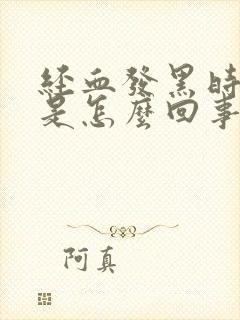 經血發黑時
是怎麼回事
阿真